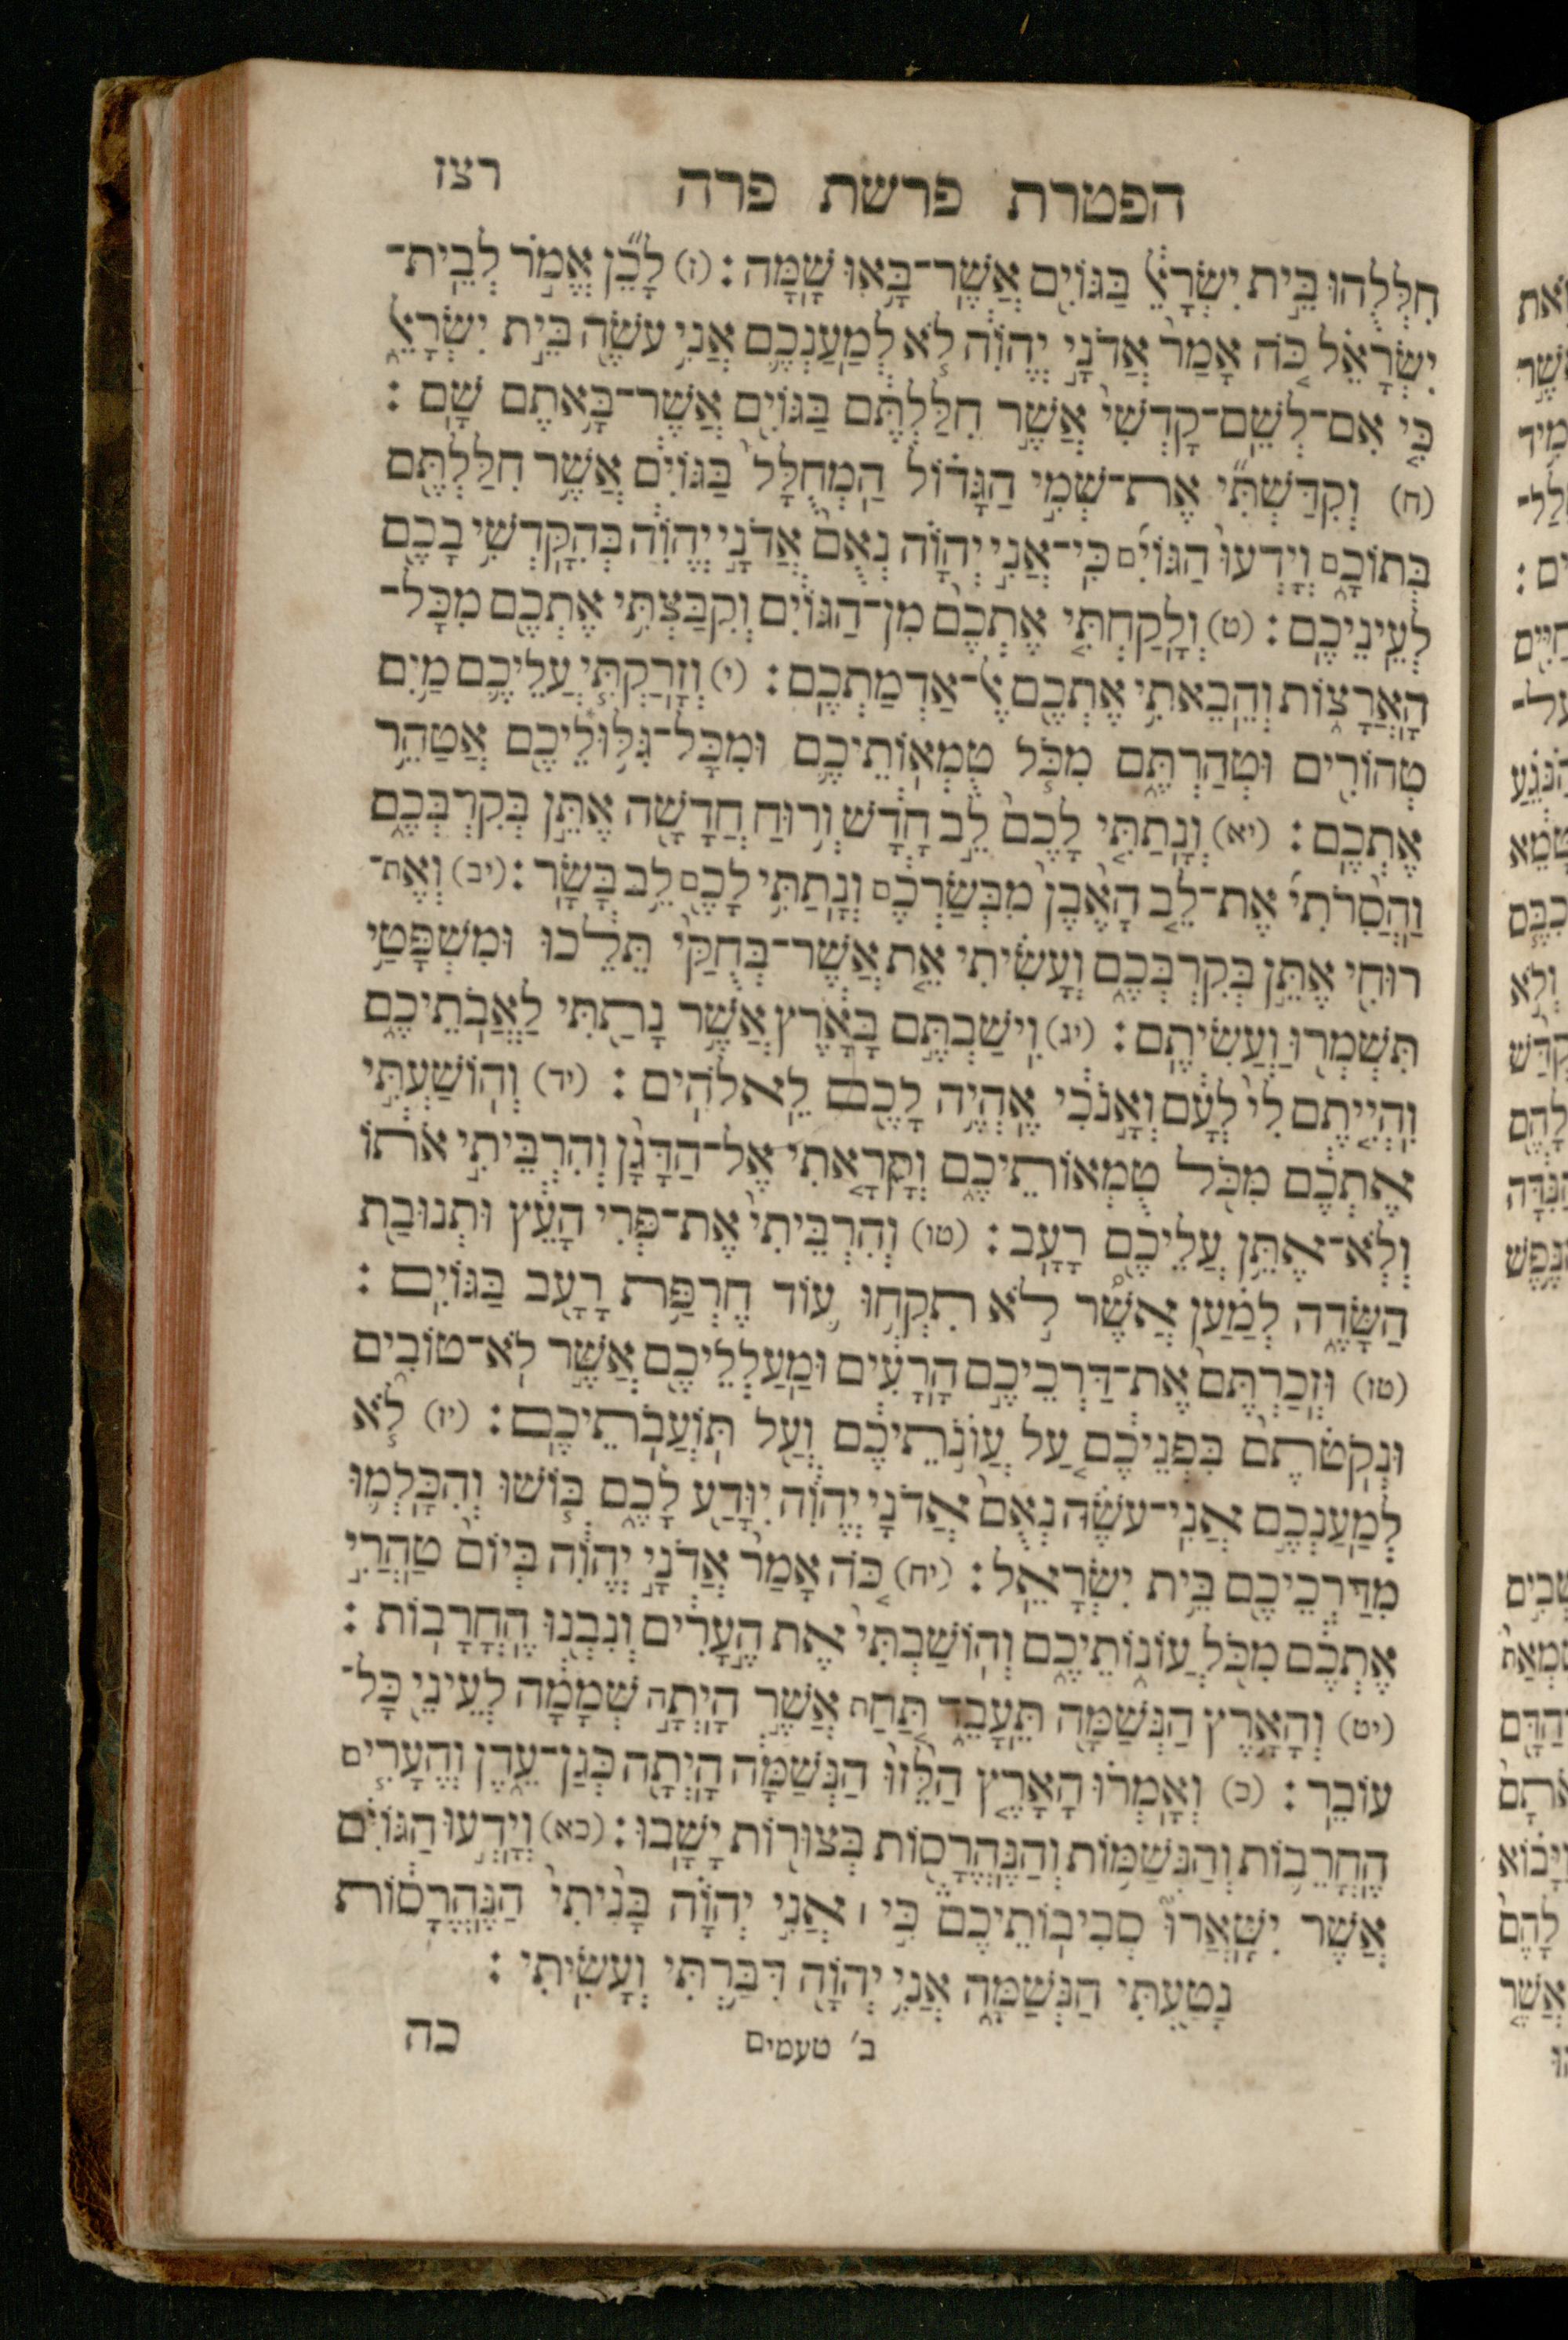 הפטרת פרשת פרה רצז
חִלְּלֻ֙הוּ֙ בֵּ֣ית יִשְׂרָאֵ֔ל בַּגּוֹיִ֖ם אֲשֶׁר־בָּ֥אוּ שָֽׁמָּה׃ (ז) לָכֵ֞ן אֱמֹ֣ר לְבֵֽית־
יִשְׂרָאֵ֗ל כֹּ֤ה אָמַר֙ אֲדֹנָ֣י יֱהֹוִ֔ה לֹ֧א לְמַעַנְכֶ֛ם אֲנִ֥י עֹשֶׂ֖ה בֵּ֣ית יִשְׂרָאֵ֑ל
כִּ֤י אִם־לְשֵֽׁם־קָדְשִׁי֙ אֲשֶׁ֣ר חִלַּלְתֶּ֔ם בַּגּוֹיִ֖ם אֲשֶׁר־בָּ֥אתֶם שָֽׁם׃
(ח) וְקִדַּשְׁתִּ֞י אֶת־שְׁמִ֣י הַגָּד֗וֹל הַֽמְחֻלָּל֙ בַּגּוֹיִ֔ם אֲשֶׁ֥ר חִלַּלְתֶּ֖ם
בְּתוֹכָ֑ם וְיָדְע֨וּ הַגּוֹיִ֜ם כִּֽי־אֲנִ֣י יְהֹוָ֗ה נְאֻם֙ אֲדֹנָ֣י יֱהֹוִ֔ה בְּהִקָּדְשִׁ֥י בָכֶ֖ם
לְעֵינֵיכֶֽם׃ (ט) וְלָקַחְתִּ֤י אֶתְכֶם֙ מִן־הַגּוֹיִ֔ם וְקִבַּצְתִּ֥י אֶתְכֶ֖ם מִכָּל־
הָאֲרָצ֑וֹת וְהֵבֵאתִ֥י אֶתְכֶ֖ם אֶל־אַדְמַתְכֶֽם׃ (י) וְזָרַקְתִּ֧י עֲלֵיכֶ֛ם מַ֥יִם
טְהוֹרִ֖ים וּטְהַרְתֶּ֑ם מִכֹּ֧ל טֻמְאֽוֹתֵיכֶ֛ם וּמִכָּל־גִּלּ֥וּלֵיכֶ֖ם אֲטַהֵ֥ר
אֶתְכֶֽם׃ (יא) וְנָתַתִּ֤י לָכֶם֙ לֵ֣ב חָדָ֔שׁ וְר֥וּחַ חֲדָשָׁ֖ה אֶתֵּ֣ן בְּקִרְבְּכֶ֑ם
וַהֲסִ֨רֹתִ֜י אֶת־לֵ֤ב הָאֶ֙בֶן֙ מִבְּשַׂרְכֶ֔ם וְנָתַתִּ֥י לָכֶ֖ם לֵ֥ב בָּשָֽׂר׃ (יב) וְאֶת־
רוּחִ֖י אֶתֵּ֣ן בְּקִרְבְּכֶ֑ם וְעָשִׂ֗יתִי אֵ֤ת אֲשֶׁר־בְּחֻקַּי֙ תֵּלֵ֔כוּ וּמִשְׁפָּטַ֥י
תִּשְׁמְר֖וּ וַעֲשִׂיתֶֽם׃ (יג) וִֽישַׁבְתֶּ֣ם בָּאָ֔רֶץ אֲשֶׁ֥ר נָתַ֖תִּי לַאֲבֹֽתֵיכֶ֑ם
וִהְיִ֤יתֶם לִי֙ לְעָ֔ם וְאָ֣נֹכִ֔י אֶהְיֶ֥ה לָכֶ֖ם לֵאלֹהִֽים׃ (יד) וְהוֹשַׁעְתִּ֣י
אֶתְכֶ֔ם מִכֹּ֖ל טֻמְאוֹתֵיכֶ֑ם וְקָרָ֤אתִי אֶל־הַדָּגָן֙ וְהִרְבֵּיתִ֣י אֹת֔וֹ
וְלֹא־אֶתֵּ֥ן עֲלֵיכֶ֖ם רָעָֽב׃ (טו) וְהִרְבֵּיתִי֙ אֶת־פְּרִ֣י הָעֵ֔ץ וּתְנוּבַ֖ת
הַשָּׂדֶ֑ה לְמַ֗עַן אֲשֶׁ֠ר לֹ֣א תִקְח֥וּ ע֛וֹד חֶרְפַּ֥ת רָעָ֖ב בַּגּוֹיִֽם׃
(טז) וּזְכַרְתֶּם֙ אֶת־דַּרְכֵיכֶ֣ם הָרָעִ֔ים וּמַעַלְלֵיכֶ֖ם אֲשֶׁ֣ר לֹֽא־טוֹבִ֑ים
וּנְקֹֽטֹתֶם֙ בִּפְנֵיכֶ֔ם עַ֚ל עֲוֺנֹ֣תֵיכֶ֔ם וְעַ֖ל תּוֹעֲבֹֽתֵיכֶֽם׃ (יז) לֹ֧א
לְמַעַנְכֶ֣ם אֲנִֽי־עֹשֶׂ֗ה נְאֻם֙ אֲדֹנָ֣י יֱהֹוִ֔ה יִוָּדַ֖ע לָכֶ֑ם בּ֧וֹשׁוּ וְהִכָּלְמ֛וּ
מִדַּרְכֵיכֶ֖ם בֵּ֥ית יִשְׂרָאֵֽל׃ (יח) כֹּ֤ה אָמַר֙ אֲדֹנָ֣י יֱהֹוִ֔ה בְּיוֹם֙ טַהֲרִ֣י
אֶתְכֶ֔ם מִכֹּ֖ל עֲוֺנוֹתֵיכֶ֑ם וְהֽוֹשַׁבְתִּי֙ אֶת הֶ֣עָרִ֔ים וְנִבְנ֖וּ הֶחֳרָבֽוֹת׃
(יט) וְהָאָ֥רֶץ הַנְּשַׁמָּ֖ה תֵּֽעָבֵ֑ד תַּ֚חַת אֲשֶׁ֣ר הָיְתָ֣ה שְׁמָמָ֔ה לְעֵינֵ֖י כָּל־
עוֹבֵֽר׃ (כ) וְאָמְר֗וּ הָאָ֤רֶץ הַלֵּ֙זוּ֙ הַנְּשַׁמָּ֔ה הָיְתָ֖ה כְּגַן־עֵ֑דֶן וְהֶעָרִ֧ים
הֶחֳרֵב֛וֹת וְהַנְשַׁמּ֥וֹת וְהַנֶּהֱרָס֖וֹת בְּצוּר֥וֹת יָשָֽׁבוּ׃ (כא) וְיָדְע֣וּ הַגּוֹיִ֗ם
אֲשֶׁ֣ר יִשָּׁאֲרוּ֮ סְבִיבֽוֹתֵיכֶם֒ כִּ֣י ׀ אֲנִ֣י יְהֹוָ֗ה בָּנִ֙יתִי֙ הַנֶּ֣הֱרָס֔וֹת
נָטַ֖עְתִּי הַנְּשַׁמָּ֑ה אֲנִ֥י יְהֹוָ֖ה דִּבַּ֥רְתִּי וְעָשִֽׂיתִי׃
ב׳ טעמים כה